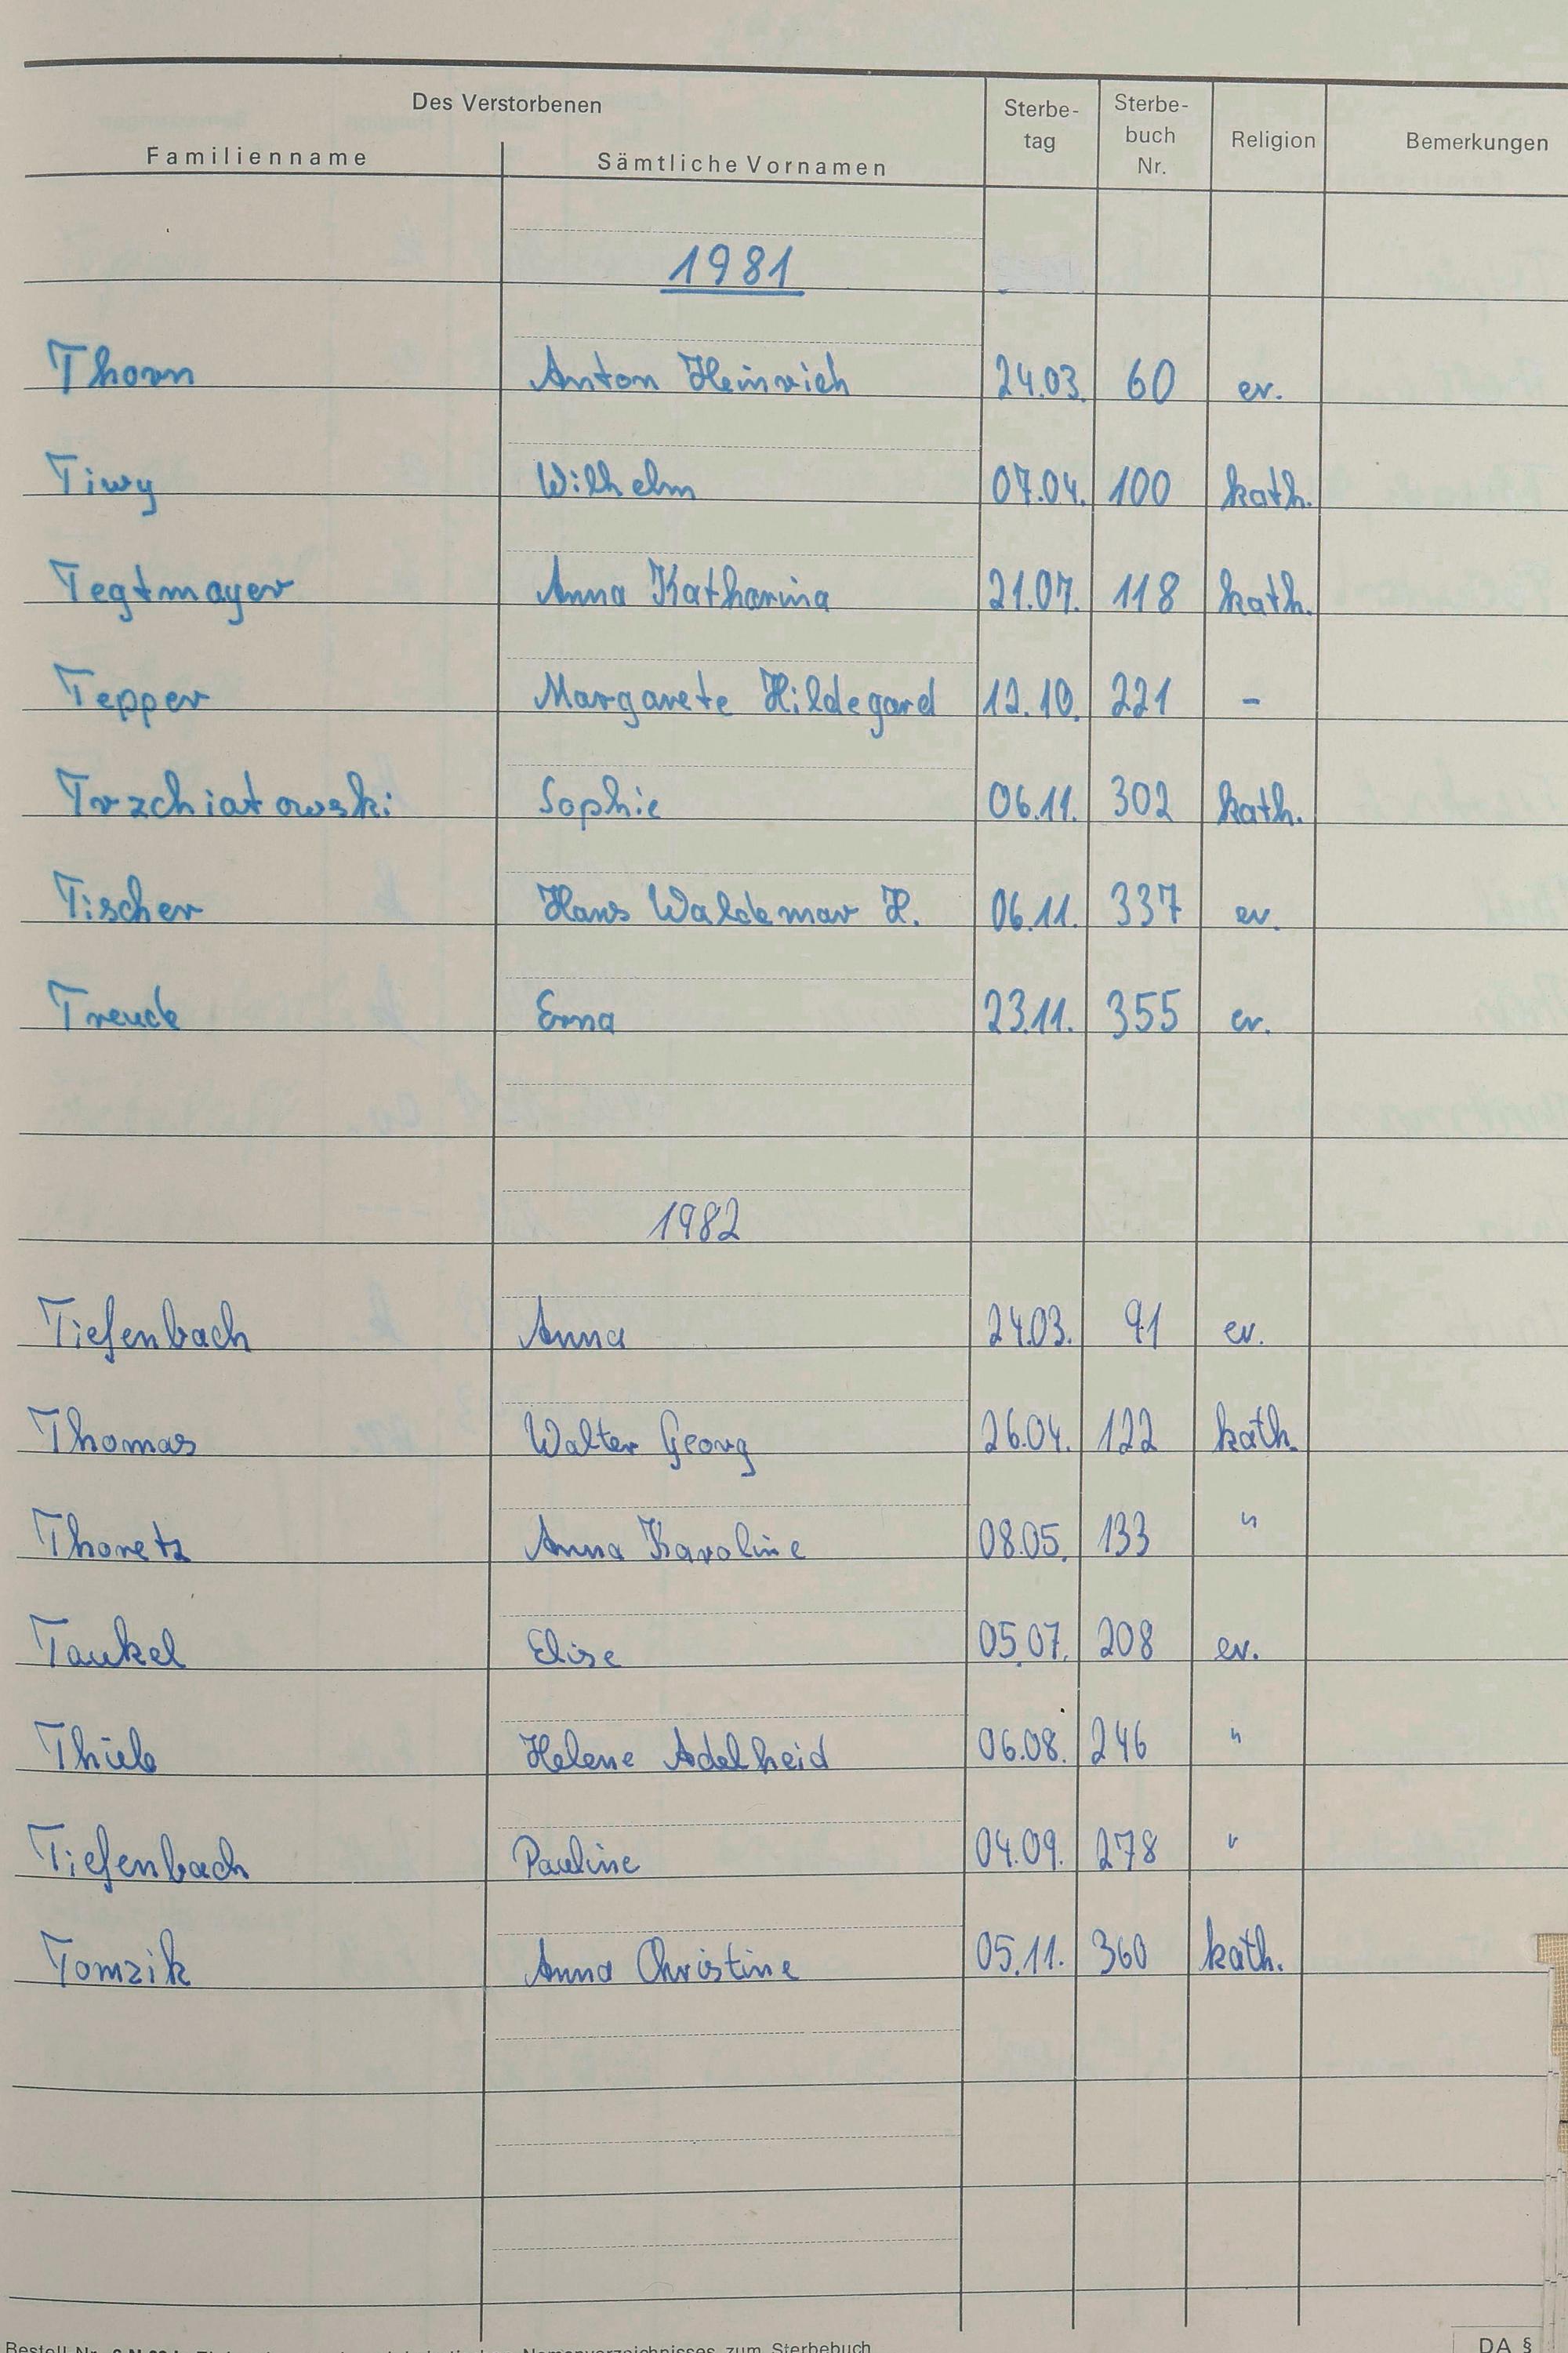 Des Verstorbenen
Familienname Sämtliche Vornamen Sterbe- tag Sterbe- buch Nr. Religion Bemerkungen
1981
Thorn Anton Heinrich 24.03. 60 ev.
Tiwy Wilhelm 07.04. 100 kath.
Tegtmayer Anna Katharina 21.07. 118 kath.
Tepper Margarete Hildegard 12.10. 221 -
Trzchiatowski Sophie 06.11. 302 kath.
Tischer Hans Waldemar H. 06.11. 337 ev.
Treuck Erna 23.11. 355 ev.
1982
Tiefenbach Anna 24.03. 91 ev.
Thomas Walter Georg 26.04. 122 kath.
Thoretz Anna Karoline 08.05. 133 "
Taukel Elise 05.07. 208 ev.
Thiele Helene Adelheid 06.08. 246 "
Tiefenbach Pauline 04.09. 278 "
Tomzik Anna Christine 05.11. 360 kath.
Bestell Nr. Namenverzeichnisses zum Sterbebuch DA §